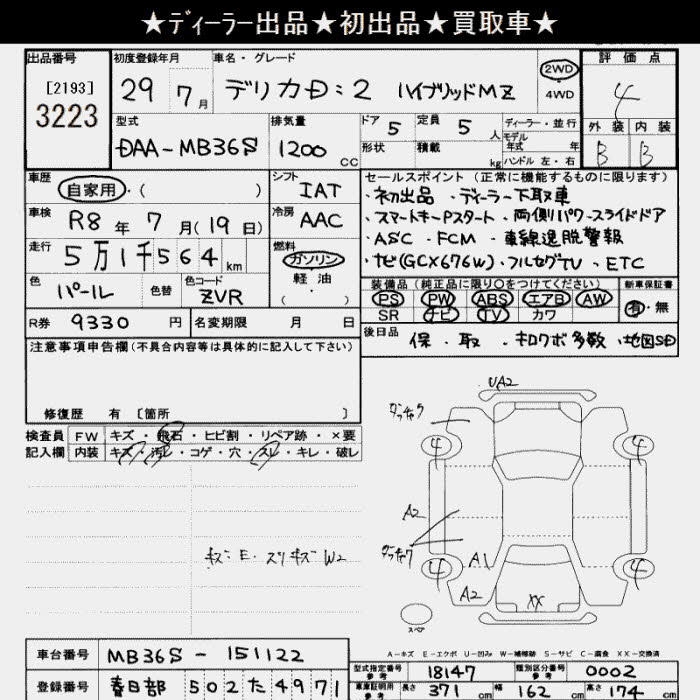 ★ディーラー出品★初出品★買取車★
出品番号 初度登録年月 車名・グレード 評価点
[2193] 29 7月 デリカD:2 ハイブリッドMZ 2WD 4WD 4
3223 外装 内装
型式 排気量 ドア 5 定員 5人 ディーラー・並行 B B
モデル年式 年
DAA-MB36S 1200cc 形状 積載 kg ハンドル 左・右
車歴 自家用・( ) シフト IAT セールスポイント(正常に機能するものに限ります)
・初出品 ・ディーラー下取車
車検 R8年7月(19日) 冷房 AAC ・スマートキーPスタート ・両側パワースライドドア
走行 5万1千564km 燃料 ガソリン 軽油 ( ) ・ASC ・FCM ・車線逸脱警報
・ナビ(GCX676W)・フルセグTV ・ETC
色 パール 色替 色コード ZVR 装備品(純正品に限り○をつけてください) 新車保証書
PS PW ABS エアB AW 有・無
R券 9330円 名変期限 月 日 SR ナビ TV カワ
注意事項申告欄(不具合内容等は具体的に記入して下さい) 後日品 保・取・キロクボ多数・地図SD
修復歴 有 [箇所 ]
検査員記入欄 FW キズ・飛石・ヒビ割・リペア跡・×要
内装 キズ・汚レ・コゲ・穴・スレ・キレ・破レ
UA2
タッチアップ
4 4
A2
タッチアップ
キズ・E・スリキズW2
A1
4 4
A2 XX
スペア
A-キズ E-エクボ U-凹み W-補修跡 S-サビ C-腐食 XX-交換済
車台番号 MB36S - 151122 型式指定番号 参考 18147 類別区分番号 参考 0002
登録番号 春日部 502 た 4971 車庫証明用 参考 長さ 371cm 幅 162cm 高さ 174cm